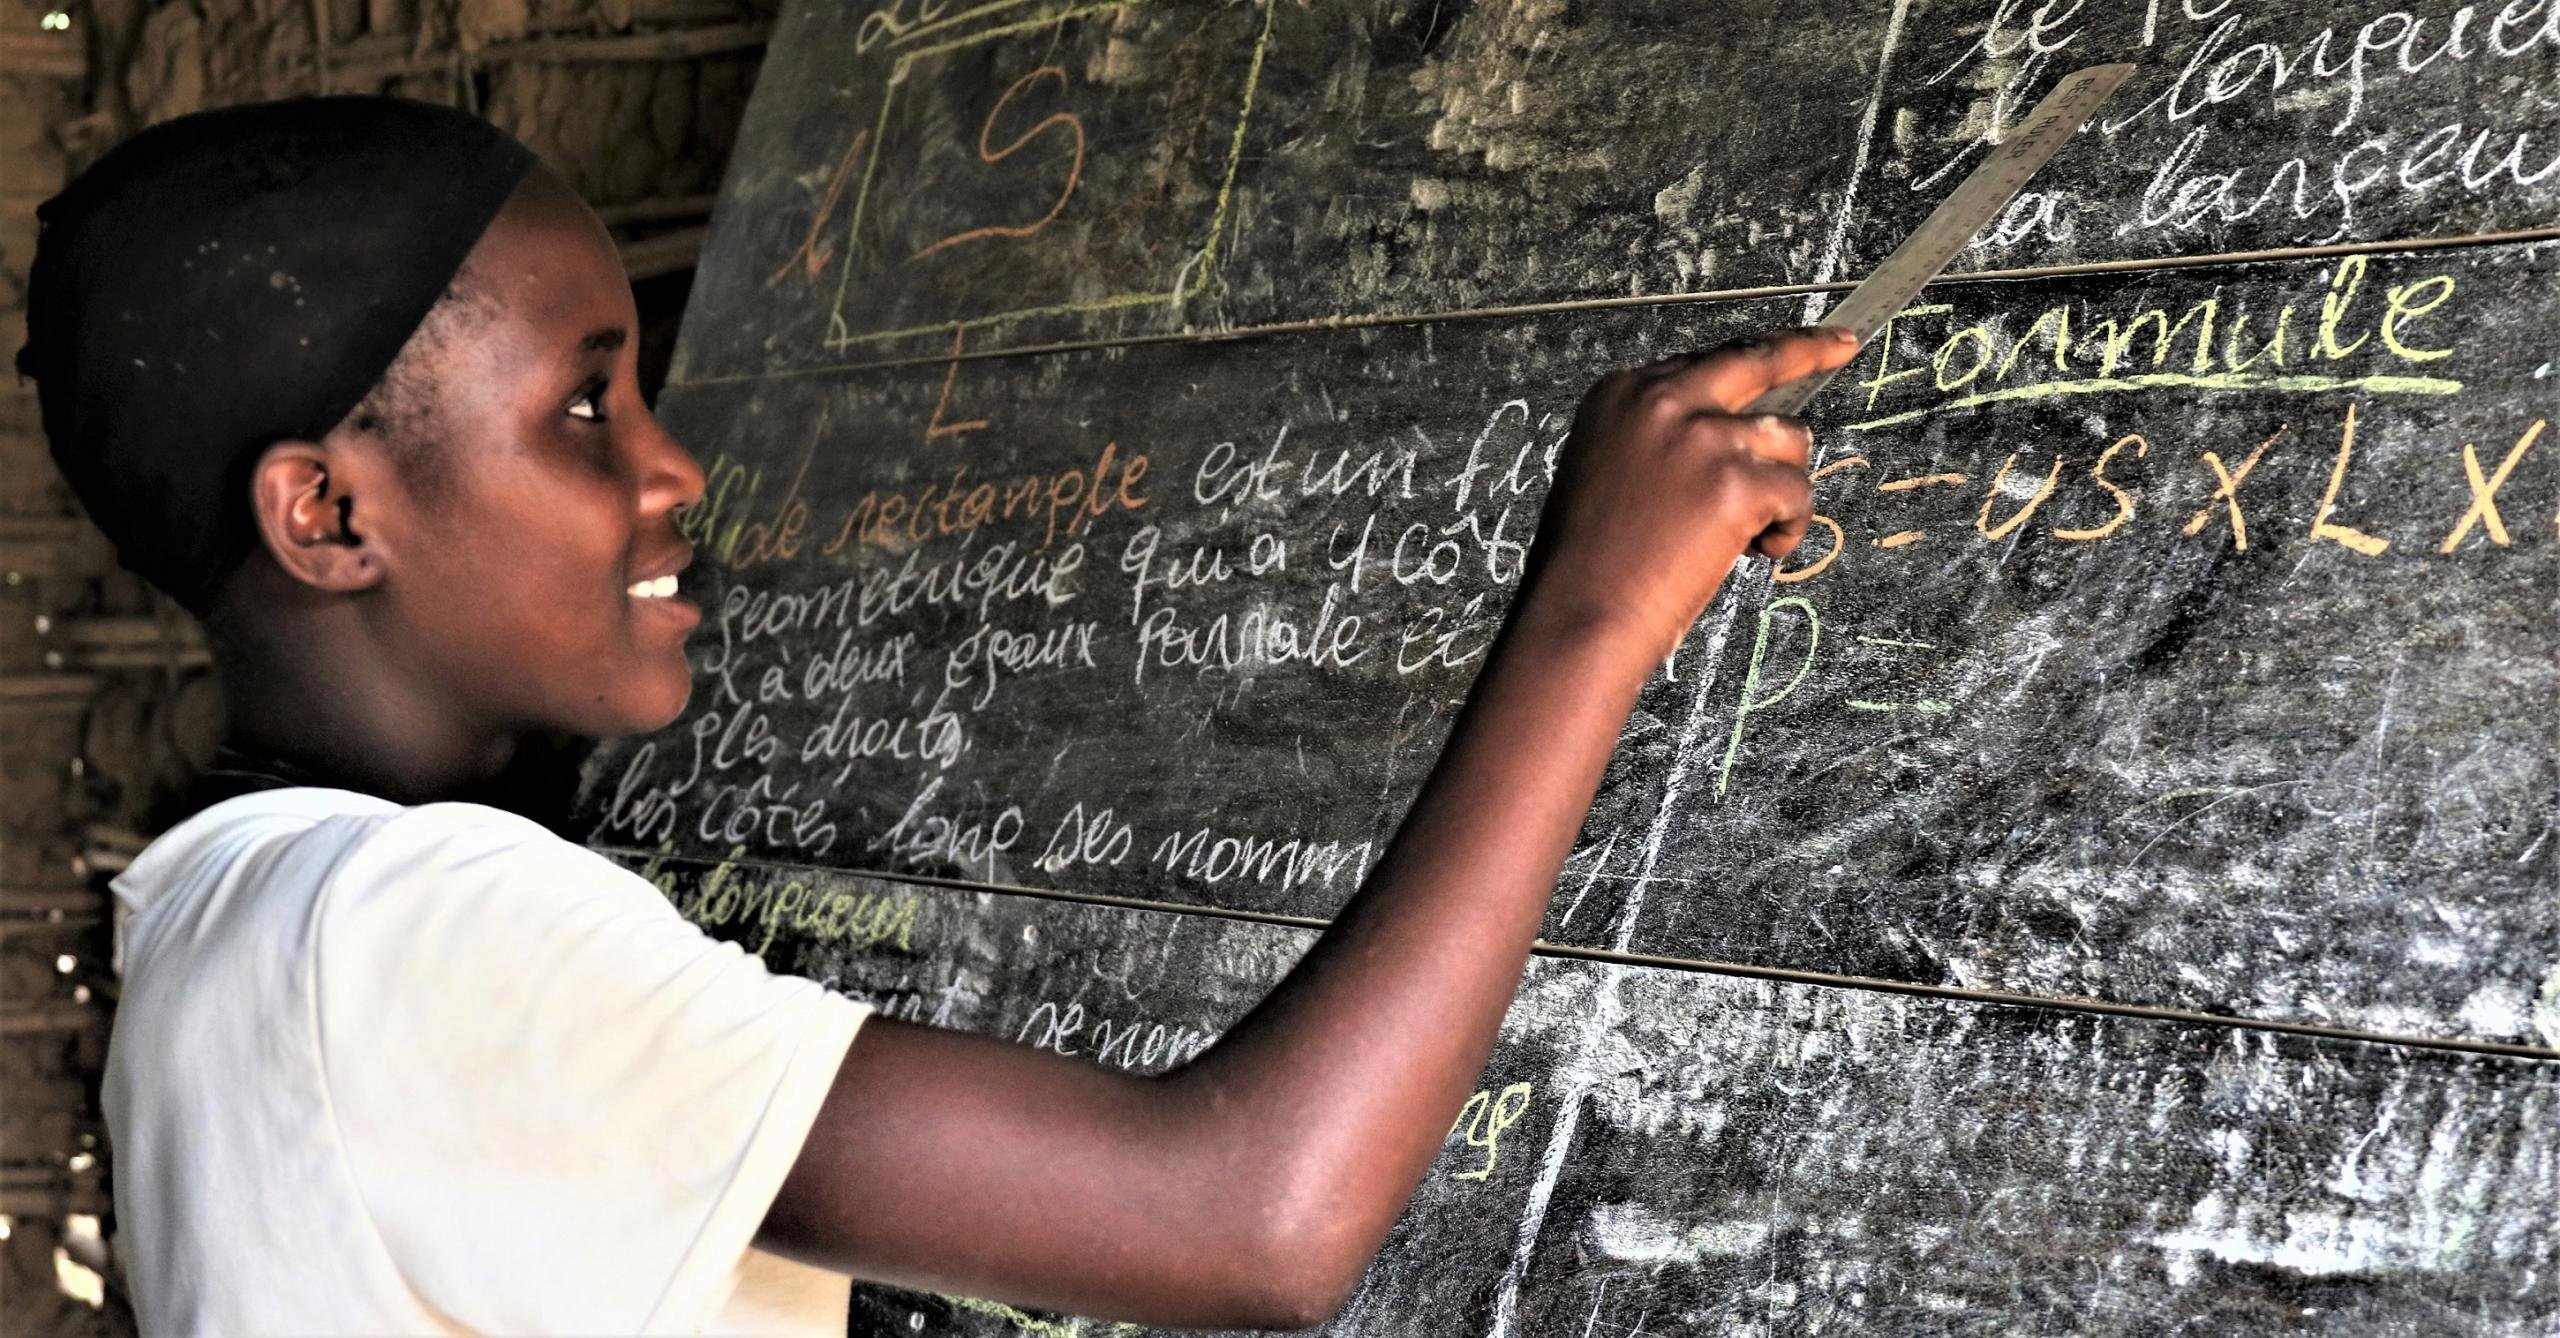 S
l
L
de rectangle est un
géometrique qui a 4
x à deux égaux Parrale et
gles droits.
les côtés long ses nomm
la longueur
se nom
ng
le
longueu
la largeu
BEST RULER
Formule
S = US X L X
P =